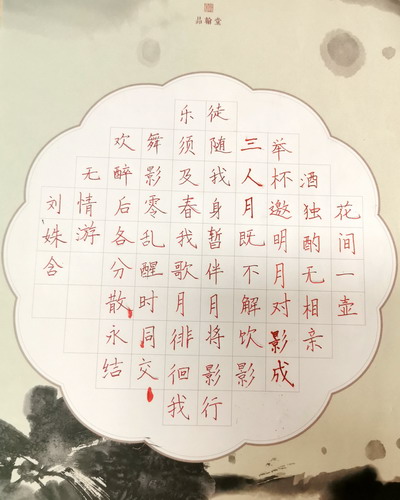 品翰堂
花间一壶
酒独酌无相亲
举杯邀明月对影成
三人月既不解饮影
徒随我身暂伴月将影行
乐须及春我歌月徘徊我
舞影零乱醒时同交
欢醉后各分散永结
无情游
刘姝含